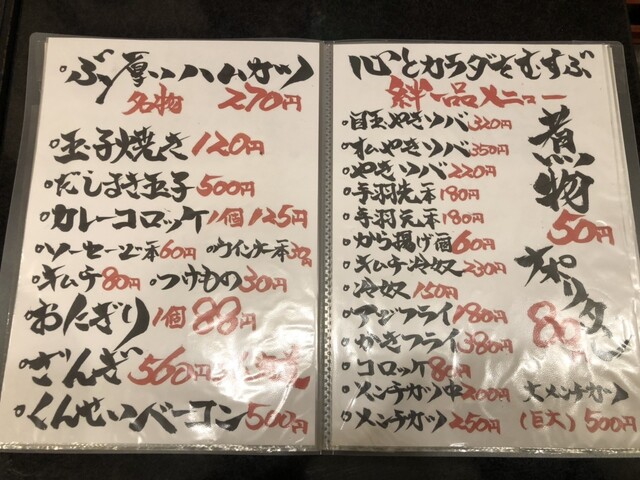 ぶ厚いハムカツ
名物 270円
玉子焼き 120円
だしまき玉子 500円
カレーコロッケ 1個 125円
ソーセージ一本 60円 ウインナー一本 30円
キムチ 80円 つけもの 30円
おにぎり 1個 88円
ざんぎ 560円
くんせいベーコン 500円
心とカラダをむすぶ
絆一品メニュー
目玉やきソバ 320円
オムやきソバ 350円
やきソバ 220円
手羽先一本 180円
手羽元一本 180円
から揚げ1個 60円
キムチ冷奴 230円
冷奴 150円
アジフライ 180円
かきフライ 380円
コロッケ 80円
メンチカツ中 200円
メンチカツ 250円
煮物
50円
ナポリタン
80円
大メンチカツ
(巨大) 500円